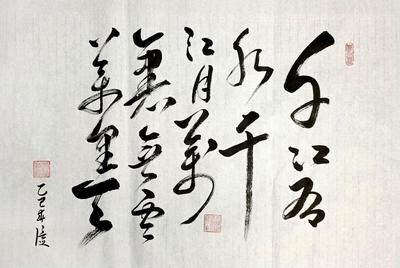 千江有
水千
江月萬
無雲
萬里天
乙巳年